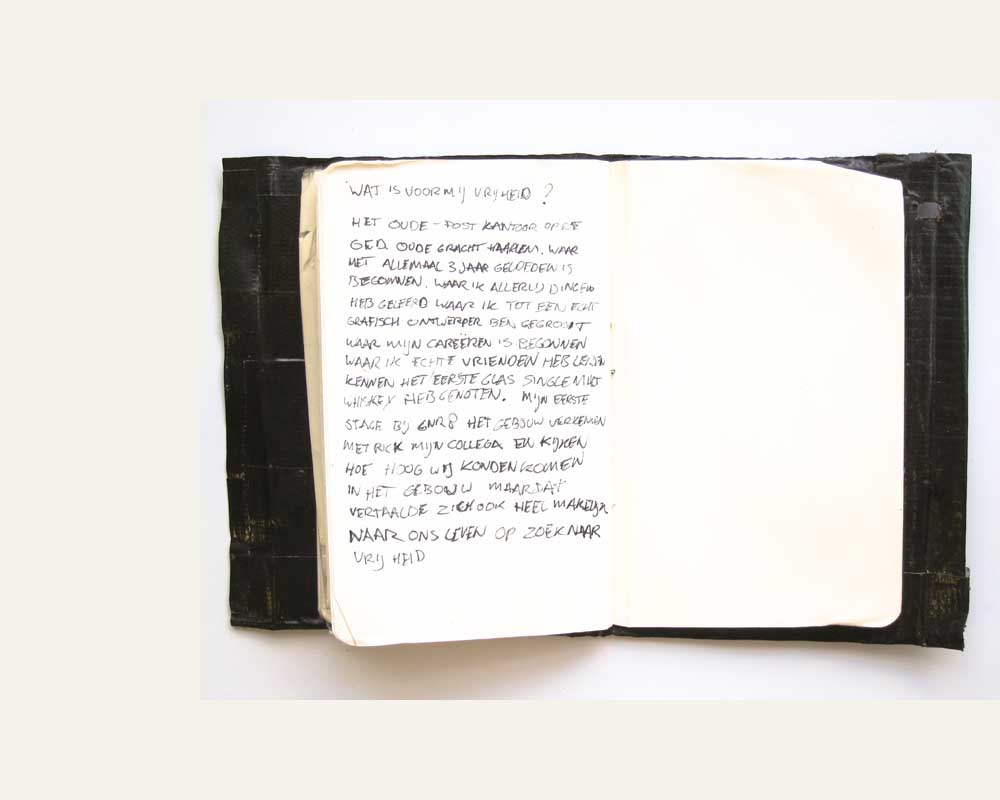 WAT IS VOOR MIJ VRIJHEID ?
HET OUDE - POST KANTOOR OP DE
GED. OUDE GRACHT HAARLEM. WAAR
HET ALLEMAAL 3 JAAR GELDEDEN IS
BEGONNEN. WAAR IK ALLERLIJ DINGEN
HEB GELEERD WAAR IK TOT EEN ECHT
GRAFISCH ONTWERPER BEN GEGROOIT
WAAR MIJN CAREËREN IS BEGONNEN
WAAR IK ECHTE VRIENDEN HEB LEREN
KENNEN HET EERSTE GLAS SINGLE MALT
WHISKEY HEB GENOTEN. MIJN EERSTE
STAGE BIJ GNR8 HET GEBOUW VERKENNEN
MET RICK MIJN COLLEGA EN KIJKEN
HOE HOOG WIJ KONDEN KOMEN
IN HET GEBOUW MAAR DAT
VERTAALDE ZICH OOK HEEL MAKELIJK
NAAR ONS LEVEN OP ZOEK NAAR
VRIJHEID